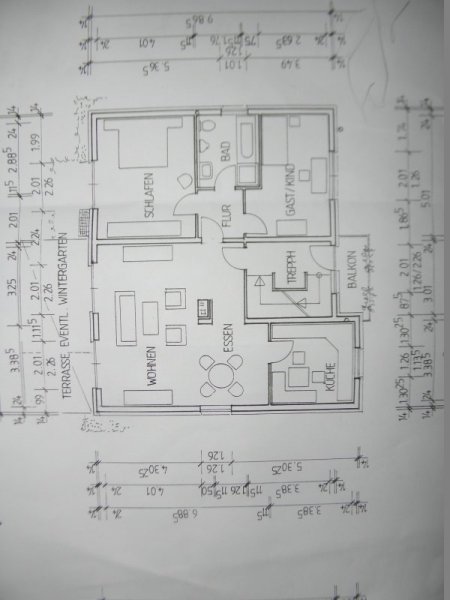 9.86⁵
24 4.01 11⁵ 1.76 75 2.63⁵ 24
1.26
5.36⁵ 1.01 3.49
SCHLAFEN
BAD
GAST/KIND
FLUR
WOHNEN
ESSEN
TREPPH
KÜCHE
BALKON
TERRASSE EVENTL. WINTERGARTEN
14 24 3.38⁵ 11⁵ 3.25 2.01 11⁵ 2.88⁵ 24 14
99 2.01 1.11⁵ 2.01 2.24 2.01 1.99
2.26 2.26 2.26
14 24 3.38⁵ 3.01 5.01 24 14
1.30²⁵ 1.26 1.30²⁵ 87⁵ 2.01 1.86⁵ 2.01 1.74
1.13⁵ 1.26/2.26 2.26
1.26
4.30²⁵ 1.26 5.30²⁵
24 4.01 11⁵ 1.26 11⁵ 3.38⁵ 24
24 6.88⁵ 11⁵ 3.38⁵ 24